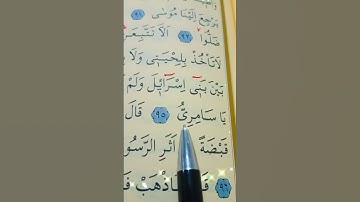 يَرْجِعَ اِلَيْنَا مُوسٰى ﴿٩١﴾
ضَلُّوا ﴿٩٢﴾ اَلَّا تَتَّبِعَنِ
لَا تَأْخُذْ بِلِحْيَتٖي وَلَا
بَيْنَ بَنٖٓي اِسْرَٓائٖلَ وَلَمْ
يَا سَامِرِيُّ ﴿٩٥﴾ قَالَ
قَبْضَةً اَثَرِ الرَّسُو
فَاذْهَبْ
﴿٩٦﴾